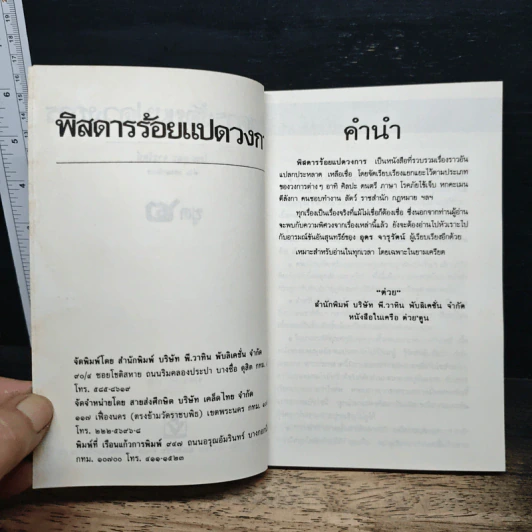 พิสดารร้อยแปดวงกา
จัดพิมพ์โดย สำนักพิมพ์ บริษัท พี.วาทิน พับลิเคชั่น จำกัด
๙๐/๔ ซอยโชติสหาย ถนนริมคลองประปา บางซื่อ ดุสิต กทม.
โทร. ๕๘๕-๘๖๑๙
จัดจำหน่ายโดย สายส่งศึกษิต บริษัท เคล็ดไทย จำกัด
๑๑๗ เฟื่องนคร (ตรงข้ามวัดราชบพิธ) เขตพระนคร กทม.
โทร. ๒๒๒-๕๖๙๖-๘
พิมพ์ที่ เรือนแก้วการพิมพ์ ๙๔๗ ถนนอรุณอัมรินทร์
กทม. ๑๐๗๐๐ โทร. ๔๑๑-๑๕๒๓
คำนำ
พิสดารร้อยแปดวงการ เป็นหนังสือที่รวบรวมเรื่องราวอัน
แปลกประหลาด เหลือเชื่อ โดยจัดเรียบเรียงแยกแยะไว้ตามประเภท
ของวงการต่างๆ อาทิ ศิลปะ ดนตรี ภาษา โรคภัยไข้เจ็บ หกคะเมน
ตีลังกา คนชอบทำงาน สัตว์ ราชสำนัก กฎหมาย ฯลฯ
ทุกเรื่องเป็นเรื่องจริงที่แม้ไม่เชื่อก็ต้องเชื่อ ซึ่งนอกจากท่านผู้อ่าน
จะพบกับความพิศวงจากเรื่องเหล่านี้แล้ว ยังจะต้องอ่านไปหัวเราะไป
กับอารมณ์ขันอันสุนทรีย์ของ อุดร จารุรัตน์ ผู้เรียบเรียงอีกด้วย
เหมาะสำหรับอ่านในทุกเวลา โดยเฉพาะในยามเครียด
"ต่วย"
สำนักพิมพ์ บริษัท พี.วาทิน พับลิเคชั่น จำกัด
หนังสือในเครือ ต่วย'ตูน